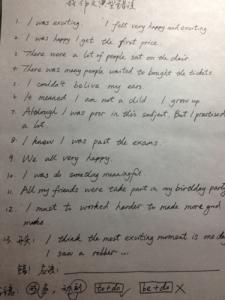 1. I was exciting. I felt very happy and exciting
2. I was happy I get the first price.
3. There were a lot of people sat on the chair
4. There was many people wanted to bought the tickets.
5. I couldn't belive my ears.
6. He meaned I am not a child I grow up
7. Although I was poor in this subject. But I practised
a lot.
8. I knew I was past the exams.
9. We all very happy.
10. I was do someday meaningful.
11. All my friends were take part in my birthday party
12. I must to worked harder to made more
make
I think the most exciting moment is one day
I saw a robber ...
错
to+do be+do ×